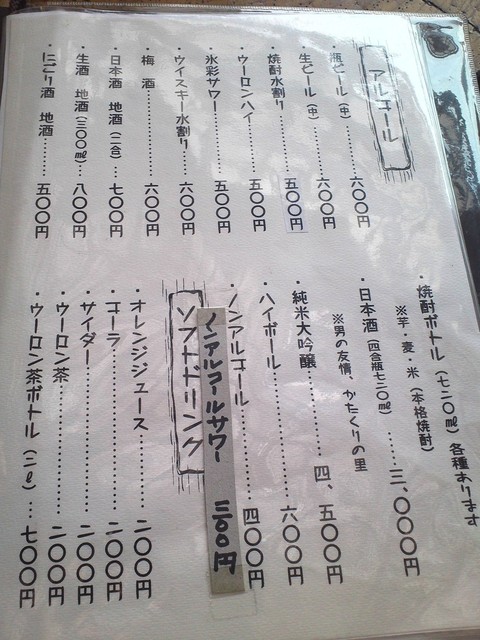 アルコール
・瓶ビール（中）……六〇〇円
・生ビール（中）……六〇〇円
・焼酎水割り……五〇〇円
・ウーロンハイ……五〇〇円
・氷彩サワー……五〇〇円
・ウイスキー水割り……六〇〇円
・梅　酒……六〇〇円
・日本酒　地酒（二合）…七〇〇円
・生酒　地酒（三〇〇㎖）…八〇〇円
・にごり酒　地酒……五〇〇円
・焼酎ボトル（七二〇㎖）各種あります
※芋・麦・米（本格焼酎）…三、〇〇〇円
・日本酒（四合瓶七二〇㎖）
※男の友情、かたくりの里
純米大吟醸……四、五〇〇円
・ハイボール……六〇〇円
・ノンアルコール……四〇〇円
ノンアルコールサワー　三〇〇円
ソフトドリンク
・オレンジジュース……二〇〇円
・コーラ……二〇〇円
・サイダー……二〇〇円
・ウーロン茶……二〇〇円
・ウーロン茶ボトル（二ℓ）…七〇〇円